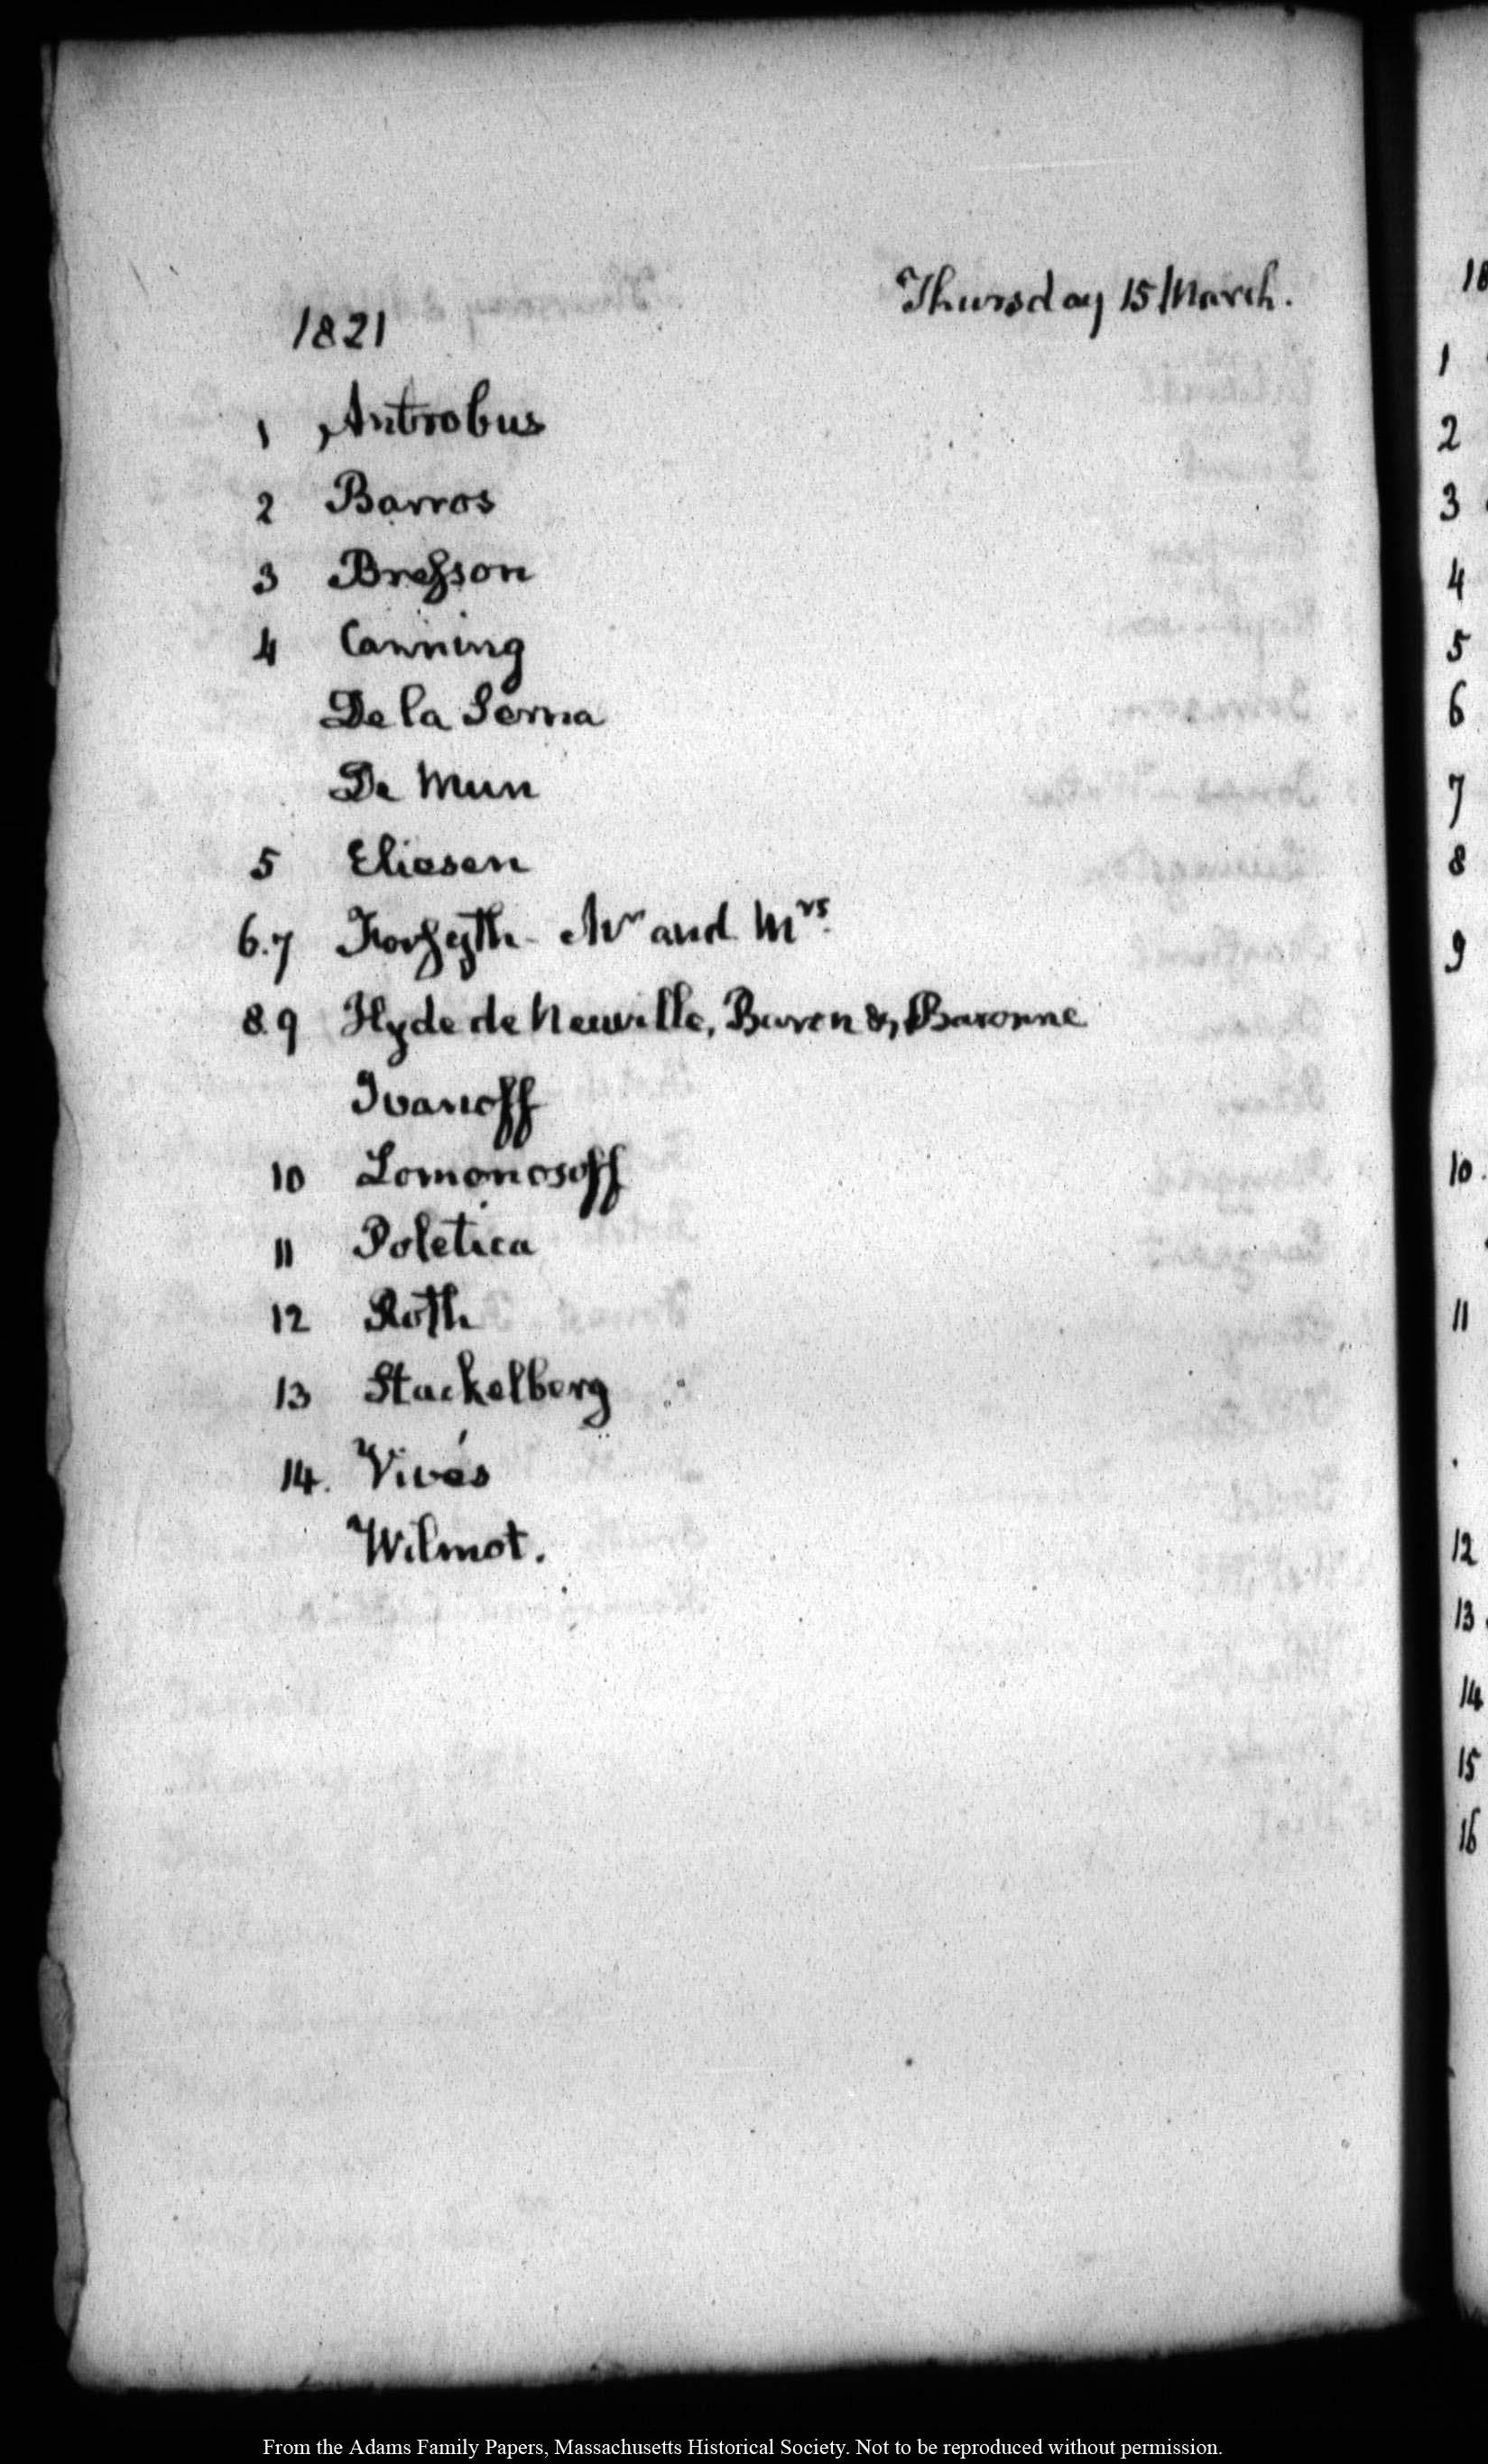 Thursday 15 March.
1821
1 Antrobus
2 Barros
3 Breſson
4 Canning
De la Serna
De Mun
5 Eliesen
6.7 Forsyth - Mr and Mrs.
8 9 Hyde de Neuville, Baron & Baronne
Ivanoff
10 Lomonosoff
11 Poletica
12 Roth
13 Stackelberg
14. Vivés
Wilmot.
18
1
2
3
4
5
6
7
8
9
10.
11
12
13
14
15
16
From the Adams Family Papers, Massachusetts Historical Society. Not to be reproduced without permission.